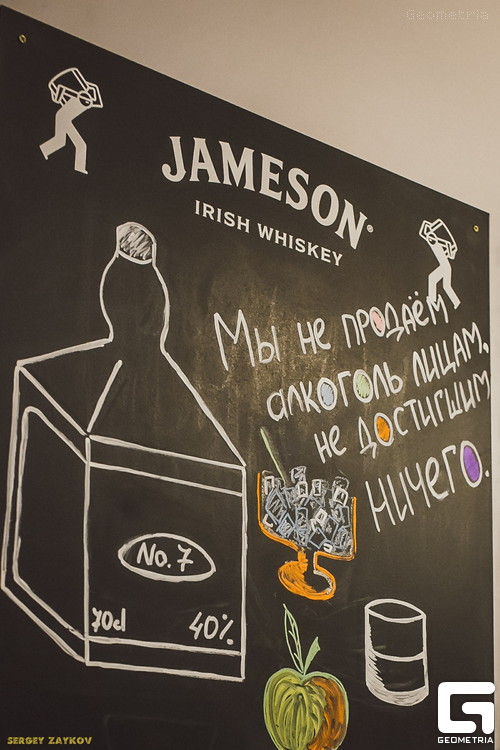 Geometria
JAMESON®
IRISH WHISKEY
Мы не продаём
алкоголь лицам,
не достигшим
ничего.
No. 7
70cl
40%
SERGEY ZAYKOV
GEOMETRIA